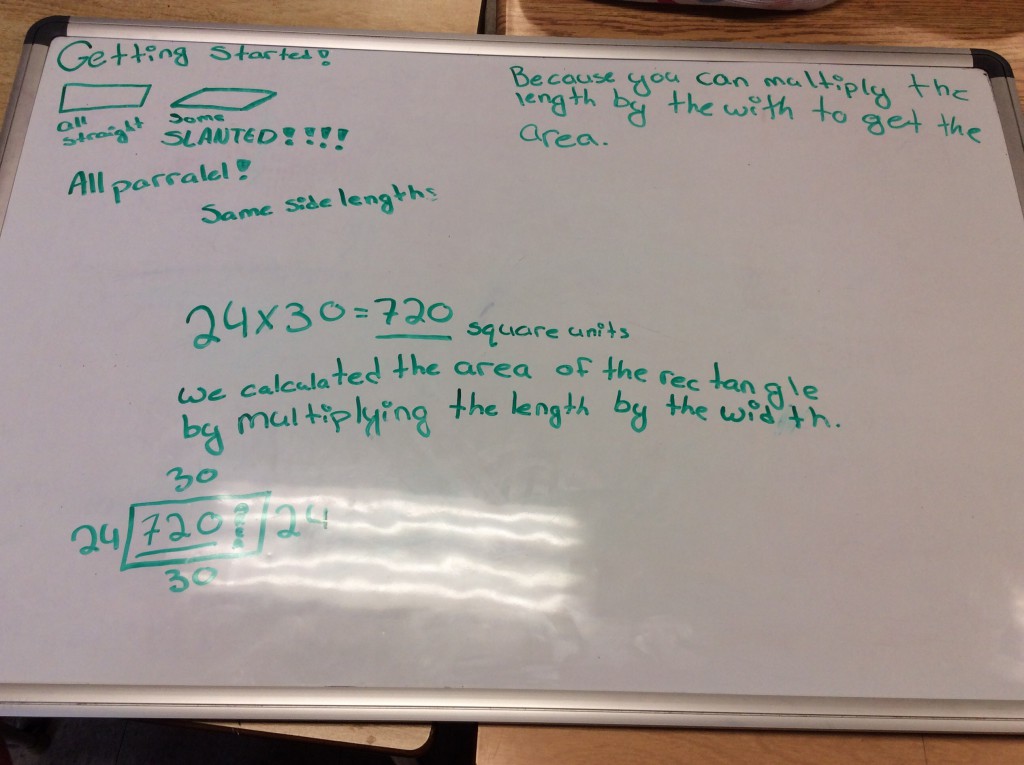 Getting Started!
all
straight
Some
SLANTED!!!!
All parralel!
Same side lengths
Because you can multiply the
length by the with to get the
area.
24x30=720 square units
we calculated the area of the rectangle
by multiplying the length by the width.
30
24 720! 24
30